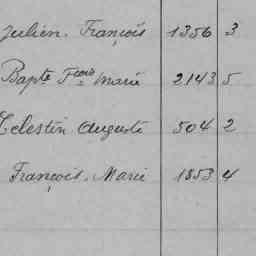 Julien. François 1356 3
Bapte Fcois Marie 2143 5
Celestin Auguste 504 2
François. Marie 1853 4